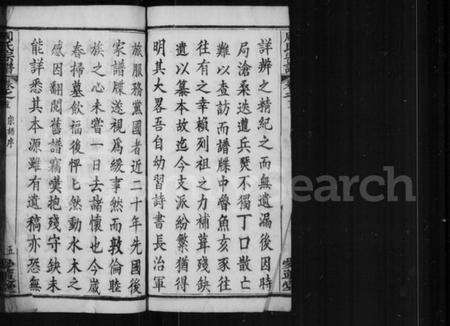 詳辨之精紀之而無遺漏後因時
局滄桑迭遭兵燹不獨丁口散亡
難以查訪而譜牒中魯魚亥豕往
往有之幸賴列祖之力補葺殘缺
遺以纂本故迄今支派紛繁猶得
明其大畧吾自幼習詩書長治軍
旅服務黨國者近二十年先國後
家譜牒遂視為緩事然而敦倫睦
族之心未嘗一日去諸懷也今歲
春掃墓飲福後怦乜然動水木之
感因翻閱舊譜竊囊抱殘守缺未
能詳悉其本源雖有遺稿亦恐無
周氏宗譜 卷之首 宗譜序
五